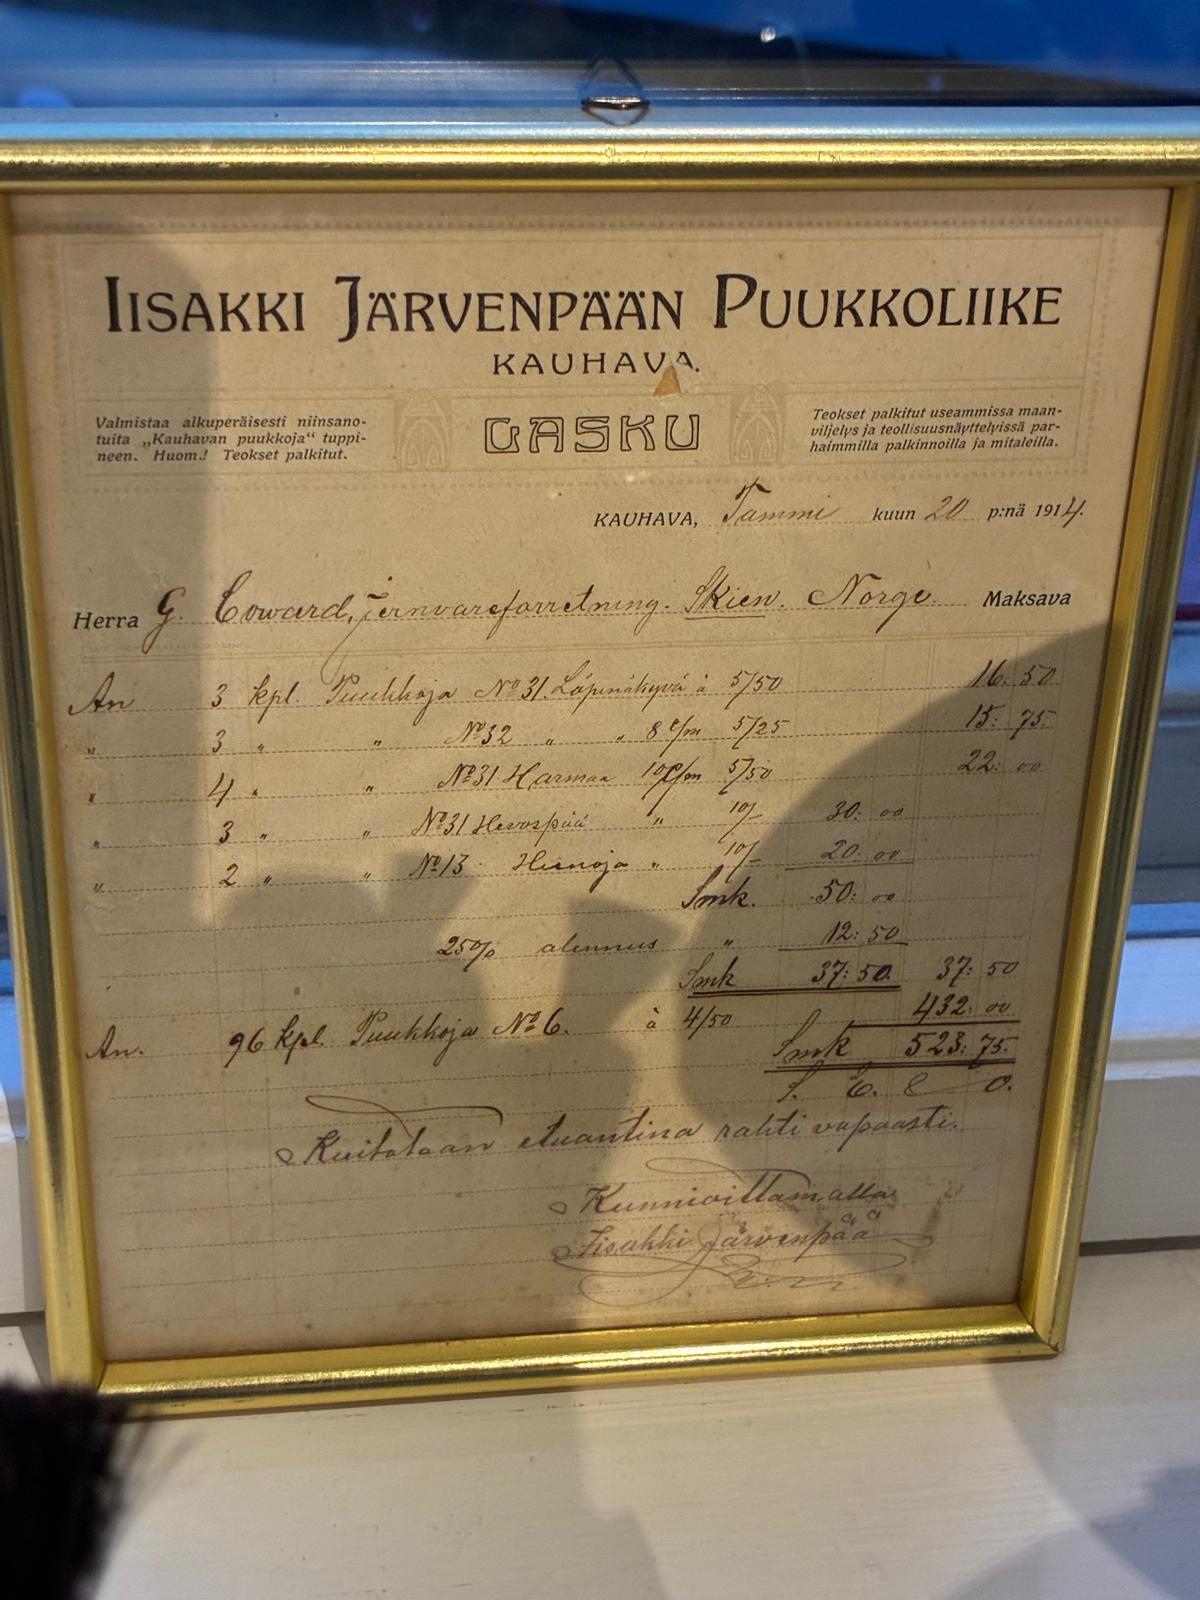 IISAKKI JÄRVENPÄÄN PUUKKOLIIKE
KAUHAVA.
Valmistaa alkuperäisesti niinsano-
tuita „Kauhavan puukkoja“ tuppi-
neen. Huom.! Teokset palkitut.
LASKU
Teokset palkitut useammissa maan-
viljelys ja teollisuusnäyttelyissä par-
haimmilla palkinnoilla ja mitaleilla.
KAUHAVA, Tammi kuun 20 p:nä 1914.
Herra G. Coward, Jernvareforretning. Skien. Norge. Maksava
An 3 kpl. Puukkoja No 31. Läpinäkyvä à 5/50 16: 50
„ 3 „ „ No 32 „ „ 8 c/m 5/25 15: 75
„ 4 „ „ No 31 Harmaa 10 c/m 5/50 22: 00
„ 3 „ „ No 31 Hevospää „ 10/- 30: 00
„ 2 „ „ No 13 Hienoja „ 10/- 20: 00
Smk. 50: 00
25% alennus „ 12: 50
Smk 37: 50. 37: 50
An. 96 kpl. Puukkoja No 6. à 4/50 432: 00
Smk 523: 75.
S. E. & O.
Kuitataan rahti vapaasti.
Kunnioittamalla
Iisakki Järvenpää